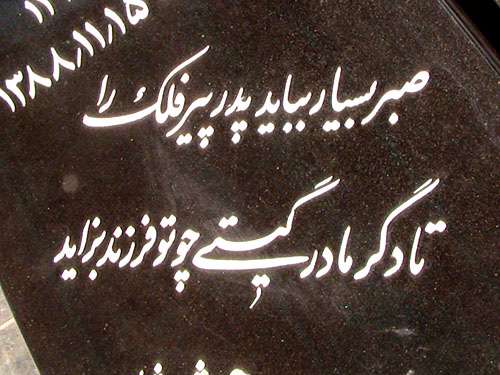 ۱۳۸۸٫۱۱٫۱۵
صبر بسیار بباید پدر پیر فلک را
تا دگر مادر گیتی چو تو فرزند بزاید